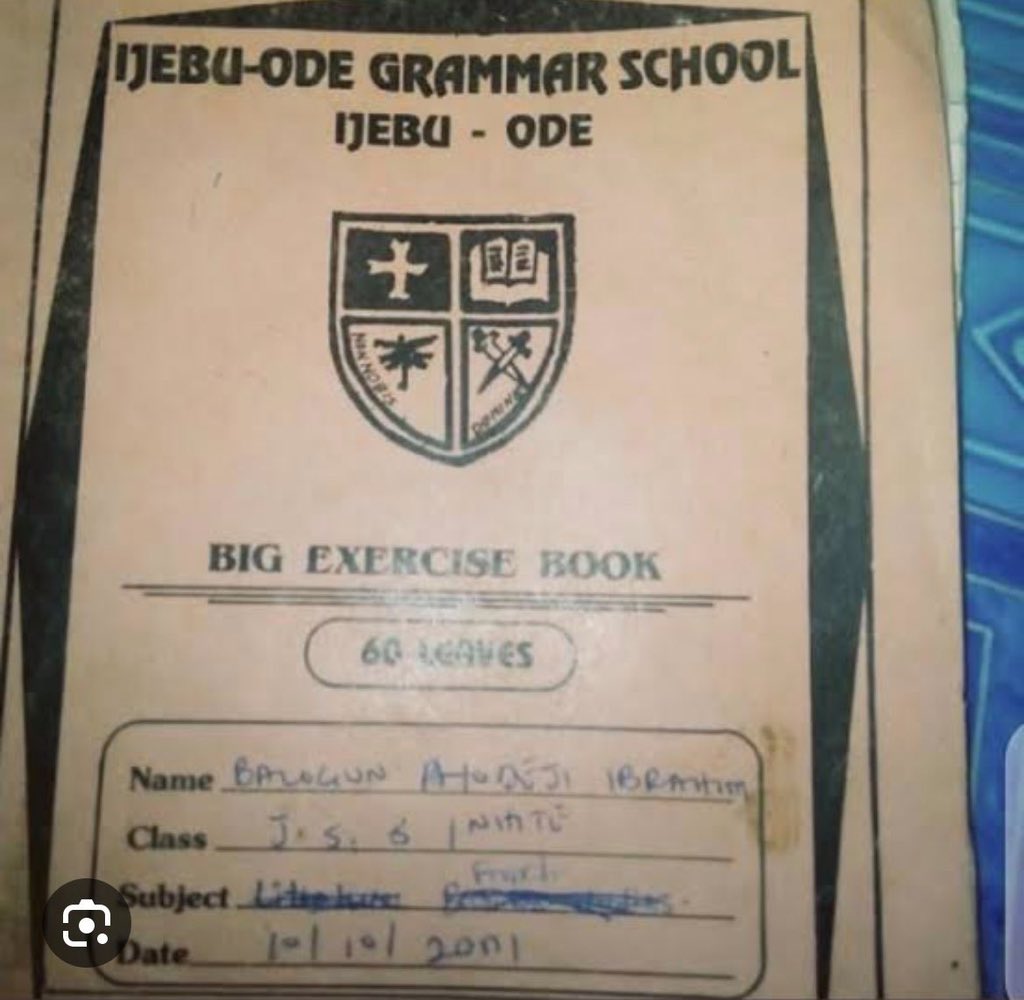 IJEBU-ODE GRAMMAR SCHOOL
IJEBU - ODE
NON NOBIS
DOMINE
BIG EXERCISE BOOK
60 LEAVES
Name BALOGUN AYODEJI IBRAHIM
Class J. S. S 1
French
Subject Literature
Date 10/10/2001